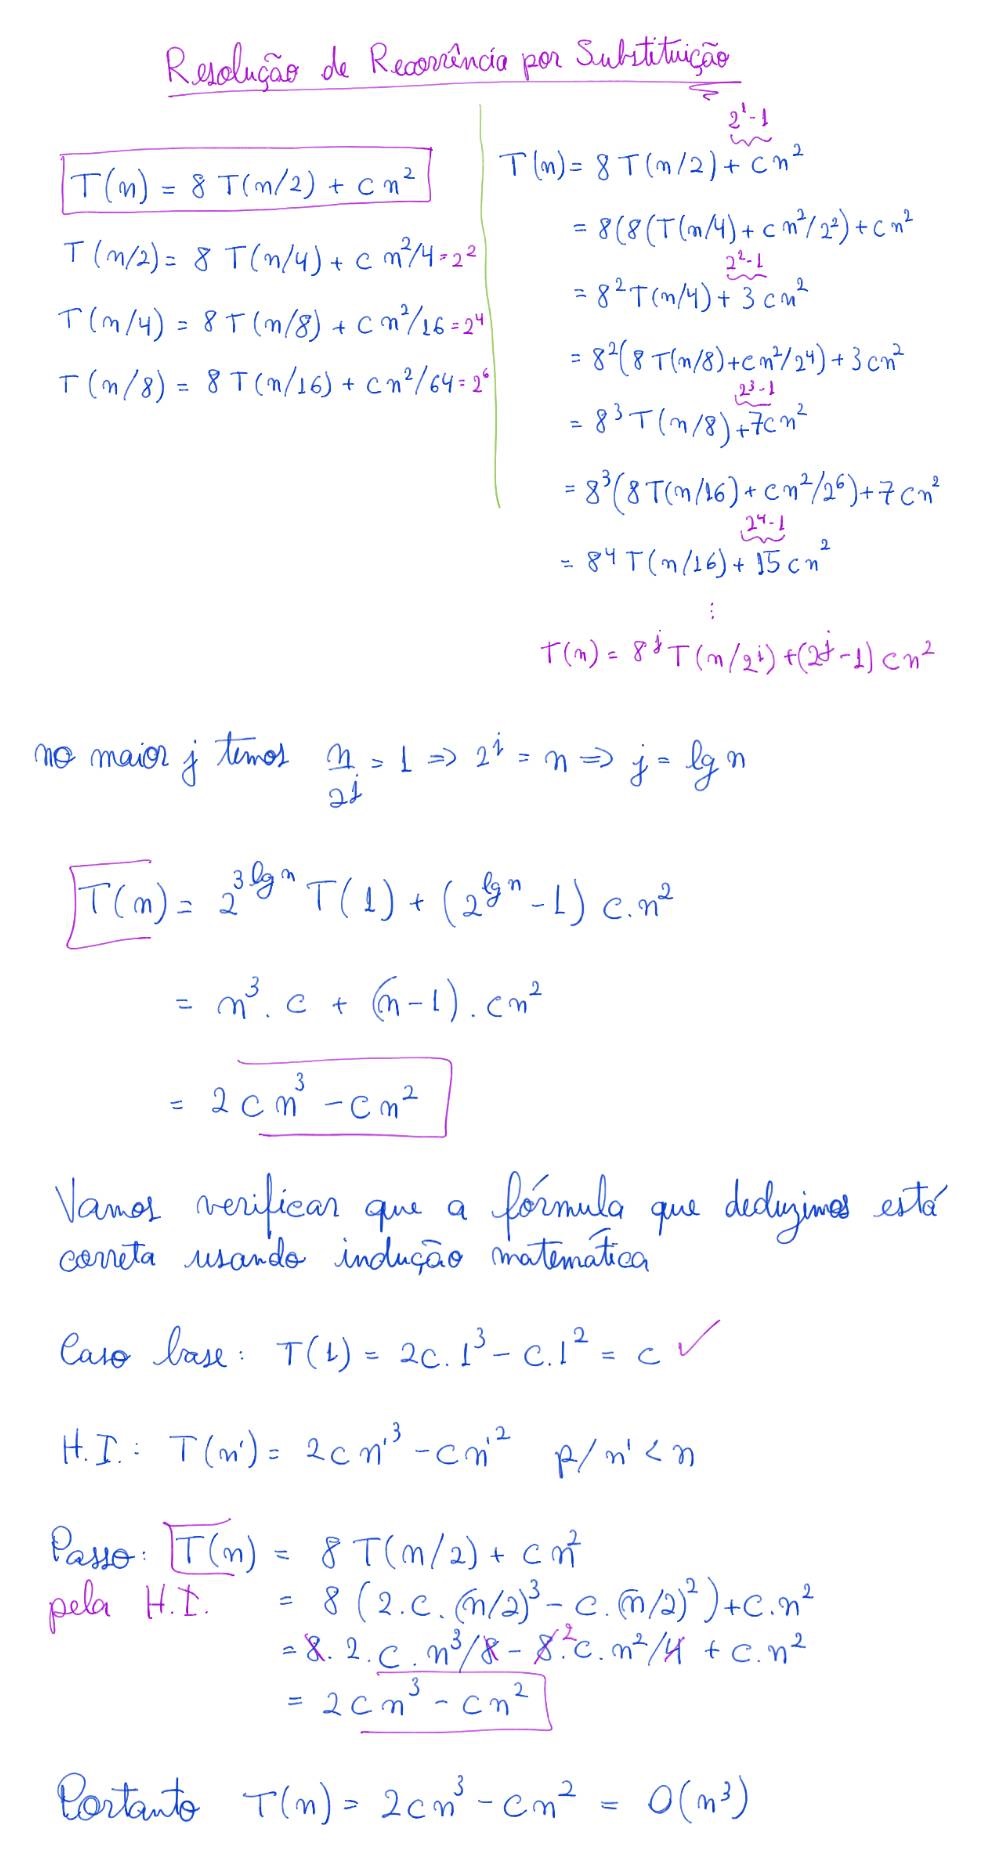 Resolução de Recorrência por Substituição
T(n) = 8 T(n/2) + c n²
T(n/2) = 8 T(n/4) + c n²/4 = 2²
T(n/4) = 8 T(n/8) + c n²/16 = 2⁴
T(n/8) = 8 T(n/16) + c n²/64 = 2⁶
2¹-1
T(n) = 8 T(n/2) + c n²
= 8(8(T(n/4) + c n²/2²) + c n²
2²-1
= 8² T(n/4) + 3 c n²
= 8²(8 T(n/8) + c n²/2⁴) + 3 c n²
2³-1
= 8³ T(n/8) + 7 c n²
= 8³(8 T(n/16) + c n²/2⁶) + 7 c n²
2⁴-1
= 8⁴ T(n/16) + 15 c n²
⋮
T(n) = 8^j T(n/2^j) + (2^j - 1) c n²
no maior j temos n/2^j = 1 ⇒ 2^j = n ⇒ j = lg n
T(n) = 2^(3 lg n) T(1) + (2^(lg n) - 1) c . n²
= n³ . c + (n - 1) . c n²
= 2 c n³ - c n²
Vamos verificar que a fórmula que deduzimos está
correta usando indução matemática
Caso base: T(1) = 2c . 1³ - c . 1² = c ✓
H.I.: T(n') = 2 c n'³ - c n'² p/ n' < n
Passo: T(n) = 8 T(n/2) + c n²
pela H.I. = 8 (2 . c . (n/2)³ - c . (n/2)²) + c . n²
= 8 . 2 . c . n³/8 - 8 .² c . n²/4 + c . n²
= 2 c n³ - c n²
Portanto T(n) = 2 c n³ - c n² = O(n³)